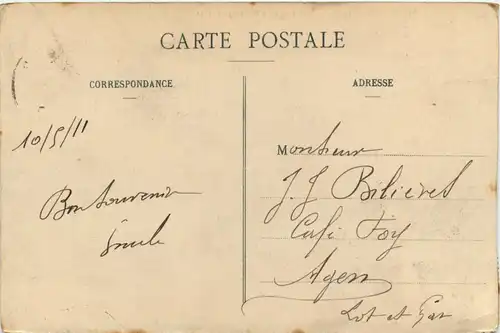 CARTE POSTALE
CORRESPONDANCE
10/5/11
Bon Souvenir
Émile
ADRESSE
Monsieur
J. J Bilièrel
Café Foy
Agen
Lot et Gar